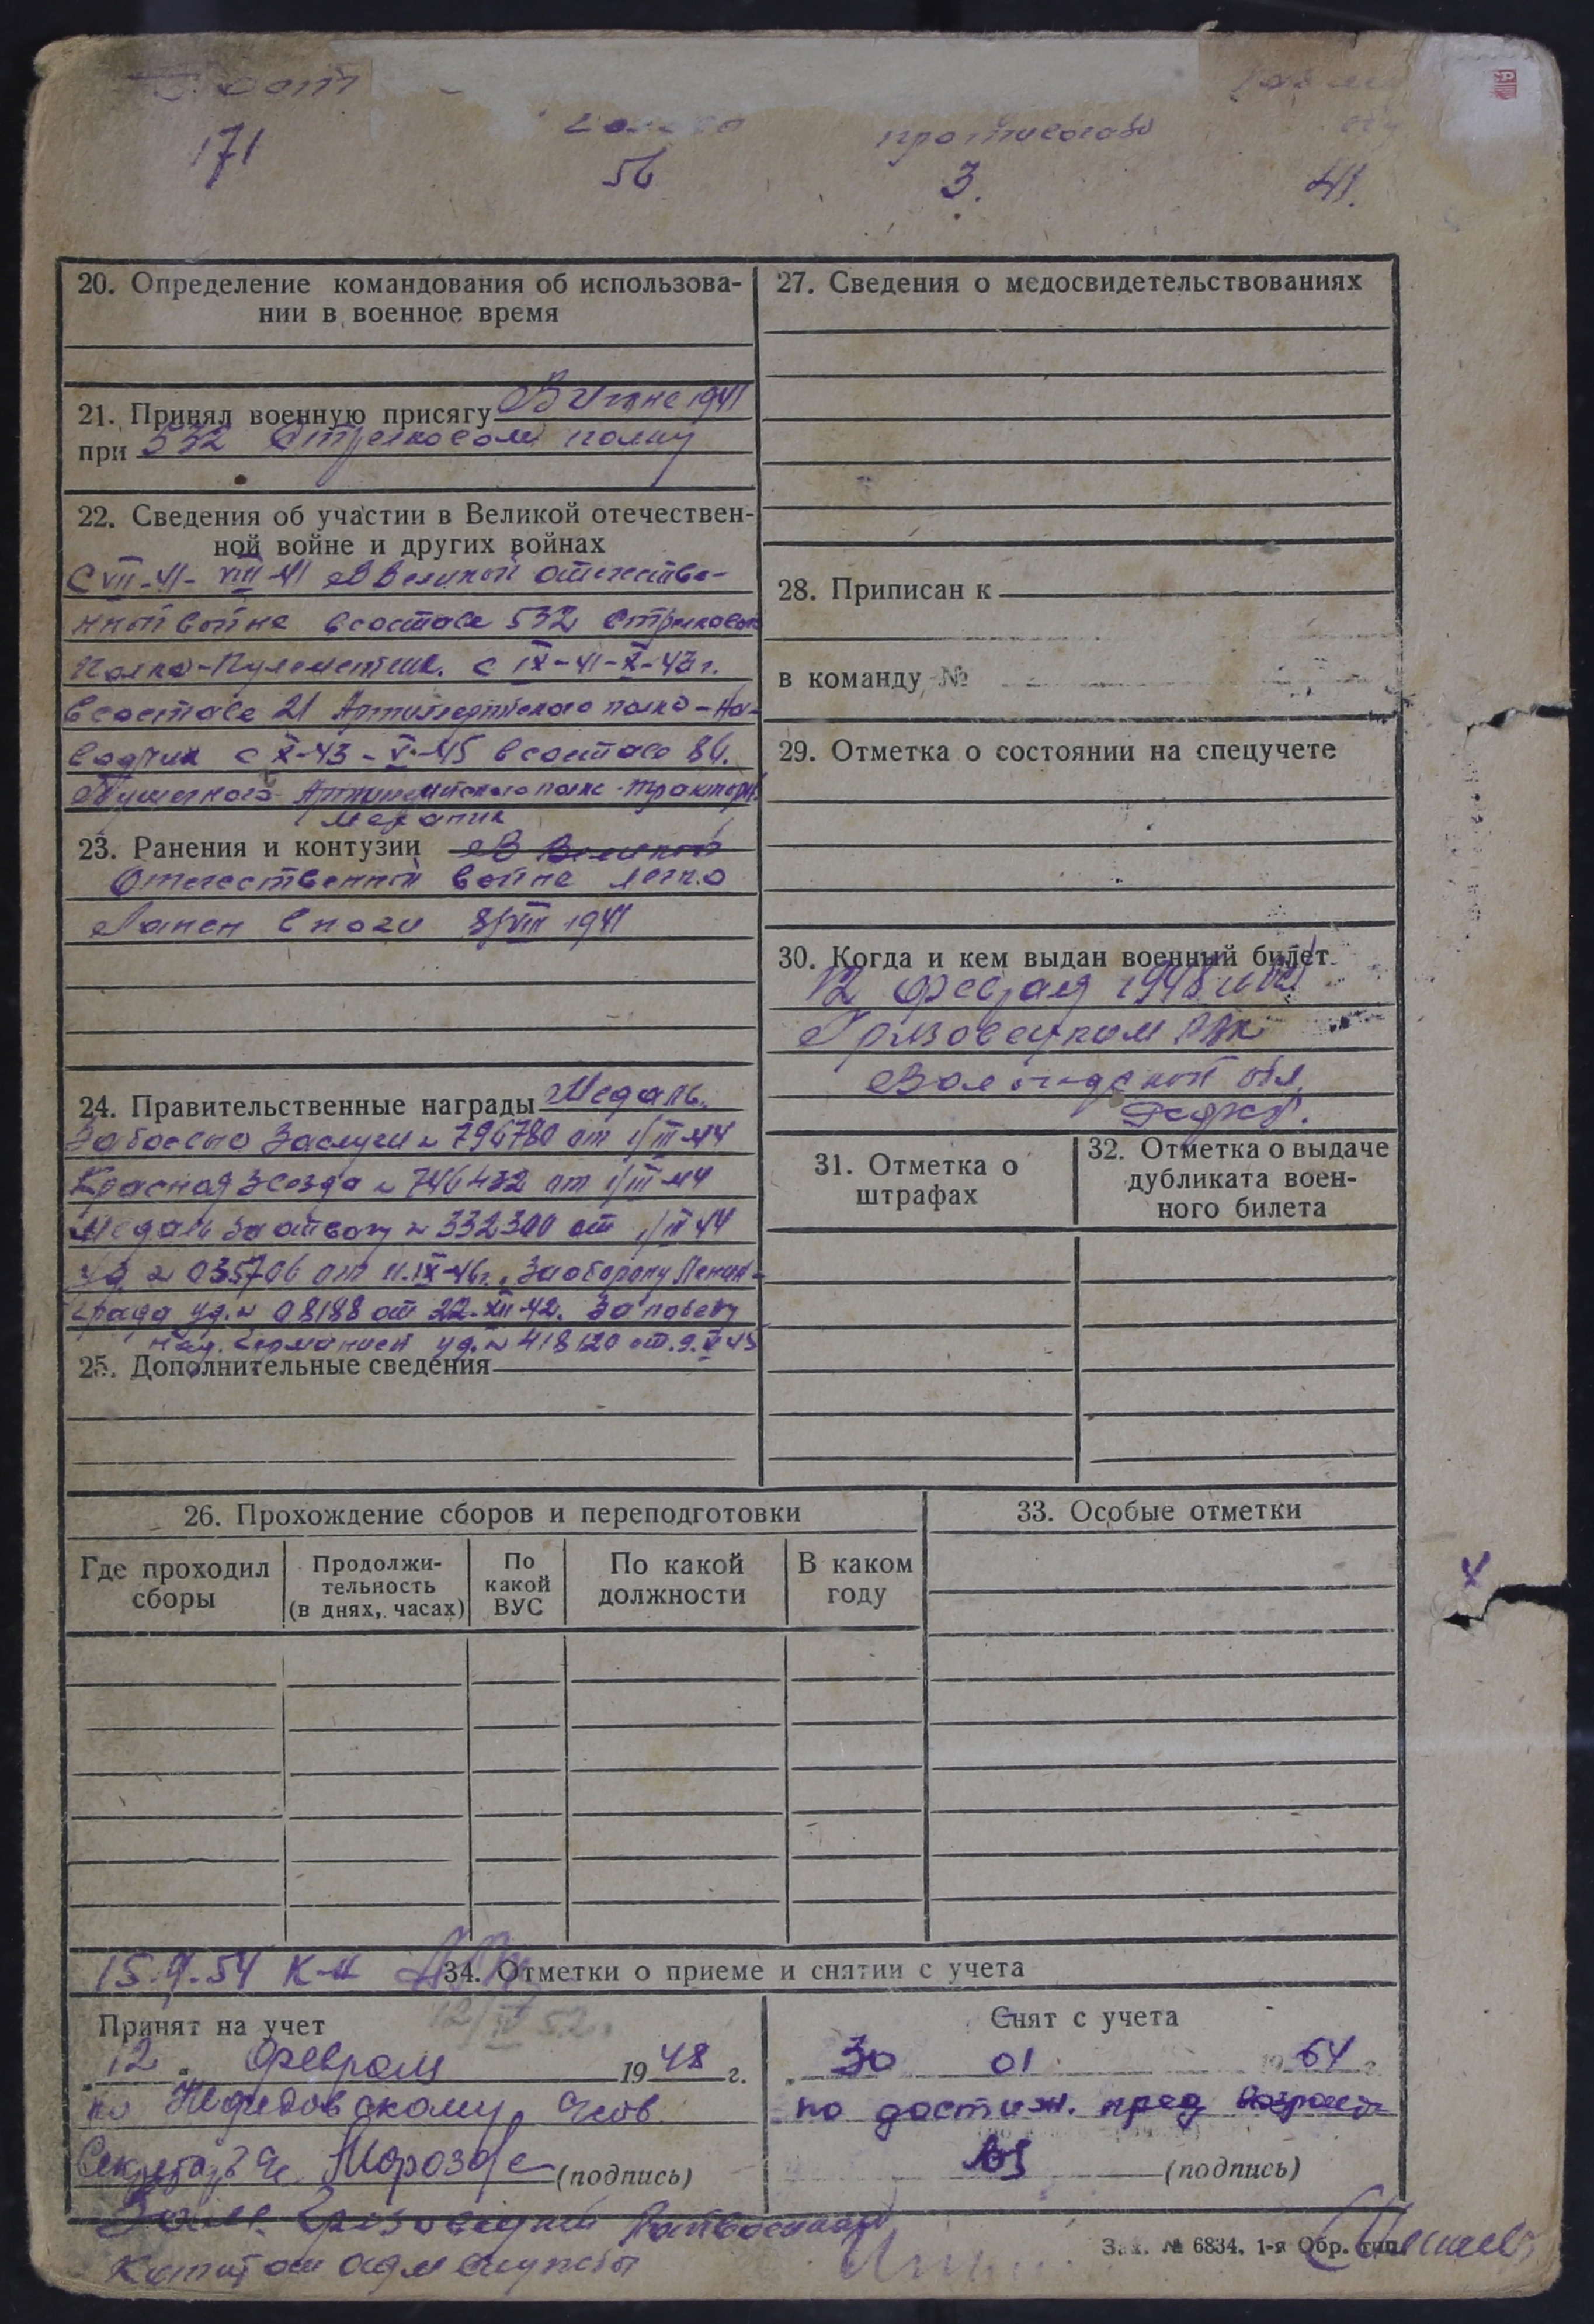 Рост
171
голова
56
противогаз
3.
41.
20. Определение командования об использова-
нии в военное время
21. Принял военную присягу В Июне 1941
при 532 Стрелковом полку
22. Сведения об участии в Великой отечествен-
ной войне и других войнах
С VII-41- VIII-41 В Великой отечестве-
нной войне в составе 532 Стрелкового
полка-Пулеметчик. с IX-41-X-43 г.
в составе 21 Артиллерийского полка-На-
водчик с X-43-V-45 в составе 84.
Пушечного Артиллерийского полка-тракторн.
механик
23. Ранения и контузии В Великой
Отечественной войне легко
Ранен в ноги 8/VIII 1941
24. Правительственные награды Медаль.
За боевые Заслуги № 796780 от 1/III-44
Красная Звезда № 746432 от 1/III-44
Медаль За отвагу № 332300 от 1/III 44
уд № 035706 от 11.IX-46г., За оборону Ленин-
града уд. № 08188 от 22-XII-42. За победу
над Германией уд. № 418120 от. 9.V 45
25. Дополнительные сведения
26. Прохождение сборов и переподготовки
Где проходил
сборы
Продолжи-
тельность
(в днях, часах)
По
какой
ВУС
По какой
должности
В каком
году
27. Сведения о медосвидетельствованиях
28. Приписан к
в команду №
29. Отметка о состоянии на спецучете
30. Когда и кем выдан военный билет
12 февраля 1948
Грязовецком РВК
Вологодской обл.
31. Отметка о
штрафах
32. Отметка о выдаче
дубликата воен-
ного билета
33. Особые отметки
15.9.54 К-н
34. Отметки о приеме и снятии с учета
12/IV 52г.
Принят на учет
"12" Февраля 1948 г.
по Нефедовскому
Секретарь Морозов (подпись)
Снят с учета
30 01 1964 г.
по достиж. пред возраста
(подпись)
Грязовецкий Райвоенком
Капитан адм службы
Зак. № 6834. 1-я Обр. тип.